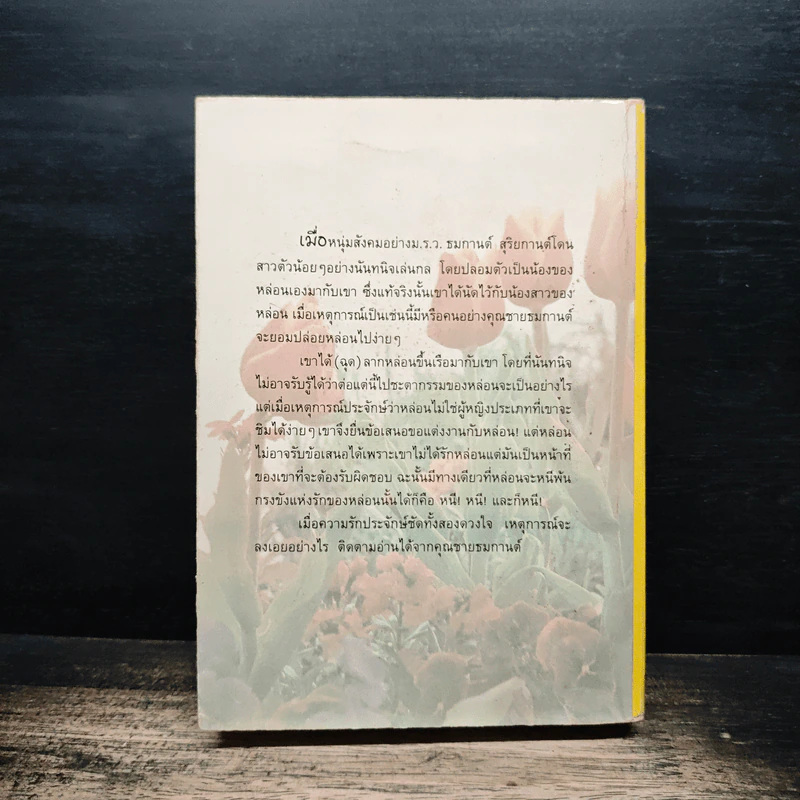 เมื่อหนุ่มสังคมอย่างม.ร.ว. ธมกานต์ สุริยกานต์โดน
สาวตัวน้อยๆอย่างนันทนิจเล่นกล โดยปลอมตัวเป็นน้องของ
หล่อนเองมากับเขา ซึ่งแท้จริงนั้นเขาได้นัดไว้กับน้องสาวของ
หล่อน เมื่อเหตุการณ์เป็นเช่นนี้มีหรือคนอย่างคุณชายธมกานต์
จะยอมปล่อยหล่อนไปง่ายๆ
เขาได้(ฉุด)ลากหล่อนขึ้นเรือมากับเขา โดยที่นันทนิจ
ไม่อาจรับรู้ได้ว่าต่อแต่นี้ไปชะตากรรมของหล่อนจะเป็นอย่างไร
แต่เมื่อเหตุการณ์ประจักษ์ว่าหล่อนไม่ใช่ผู้หญิงประเภทที่เขาจะ
ชิมได้ง่ายๆเขาจึงยื่นข้อเสนอขอแต่งงานกับหล่อน! แต่หล่อน
ไม่อาจรับข้อเสนอได้เพราะเขาไม่ได้รักหล่อนแต่มันเป็นหน้าที่
ของเขาที่จะต้องรับผิดชอบ ฉะนั้นมีทางเดียวที่หล่อนจะหนีพ้น
กรงขังแห่งรักของหล่อนนั้นได้ก็คือ หนี! หนี! และก็หนี!
เมื่อความรักประจักษ์ชัดทั้งสองดวงใจ เหตุการณ์จะ
ลงเอยอย่างไร ติดตามอ่านได้จากคุณชายธมกานต์